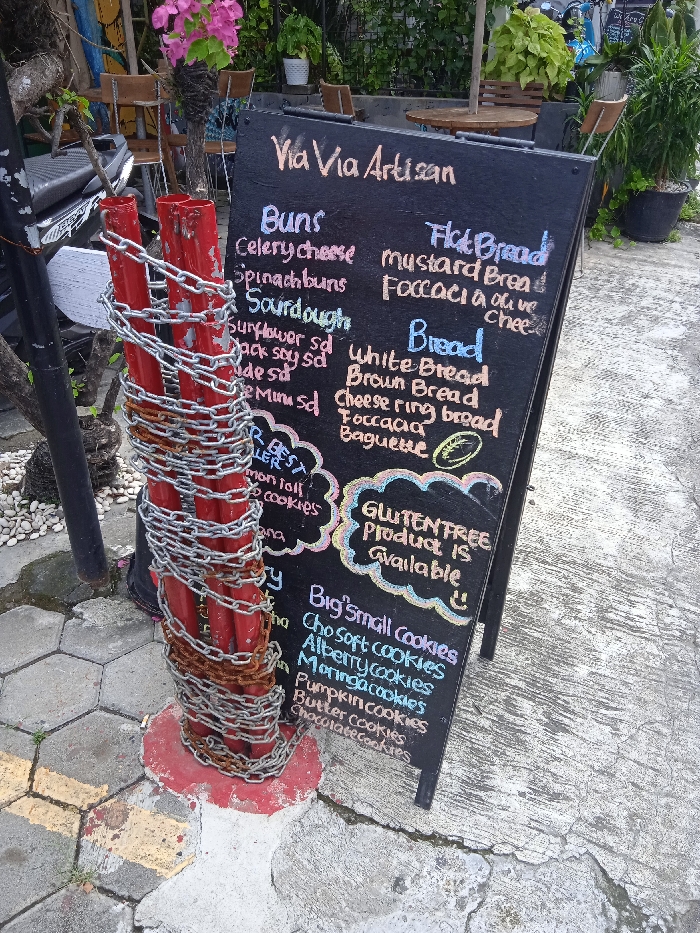 Via Via Artisan
Buns
Celery cheese
Spinach buns
Sourdough
Sunflower sd
soy sd
sd
Mini sd
BEST
cookies
Flat Bread
Mustard Bread
Foccacia olive
Chee
Bread
White Bread
Brown Bread
Cheese ring bread
Foccacia
Baguette
GLUTEN FREE
Product is
available
Big & Small cookies
Cho Soft cookies
Alberry cookies
Moringa cookies
Pumpkin cookies
Butter cookies
Chocolate cookies